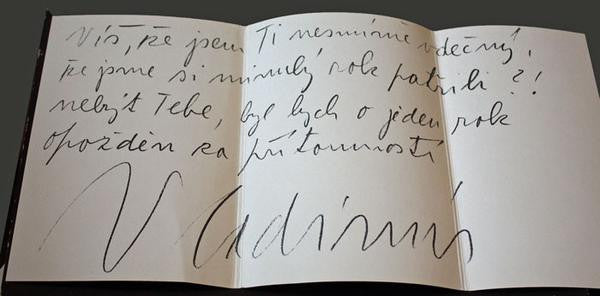 Víš, že jsem Ti nesmírně vděčný,
že jsme si minulý rok patřili?!
nebýt Tebe, byl bych o jeden rok
opožděn za přítomností
Vladimír